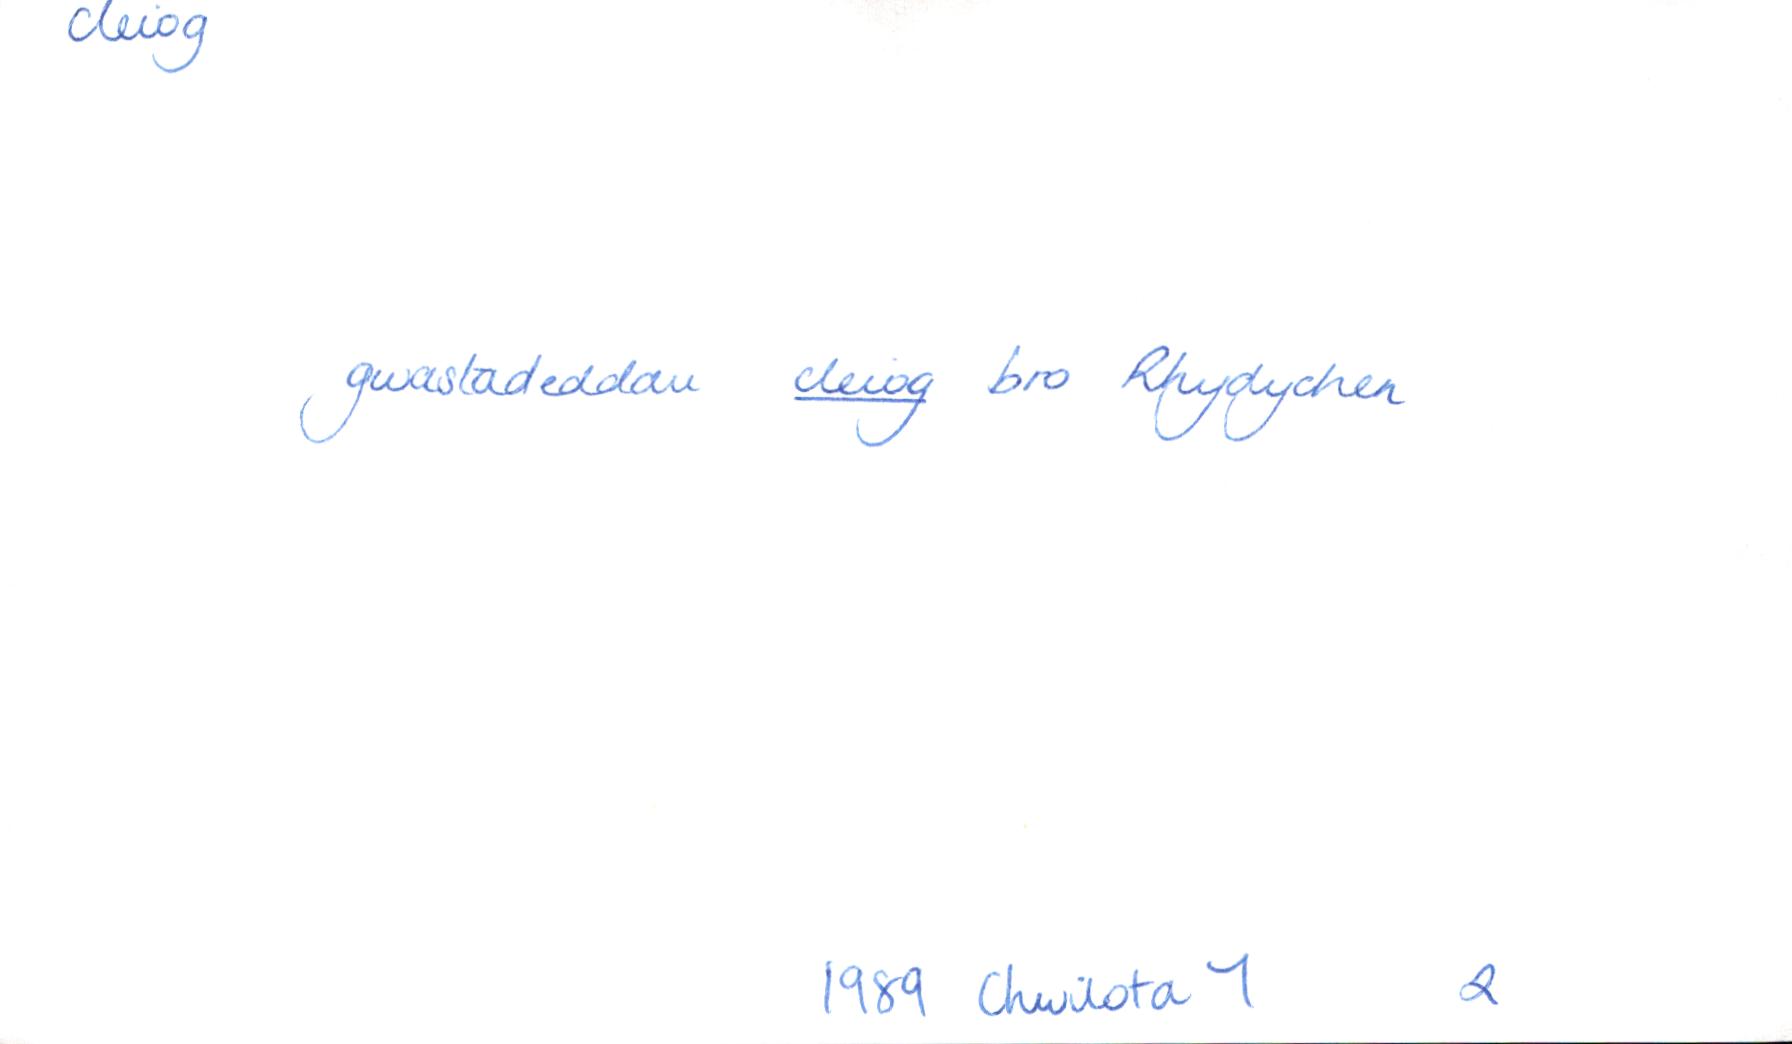 cleiog
gwastadeddau cleiog bro Rhydychen
1989 Chwilota 7 2